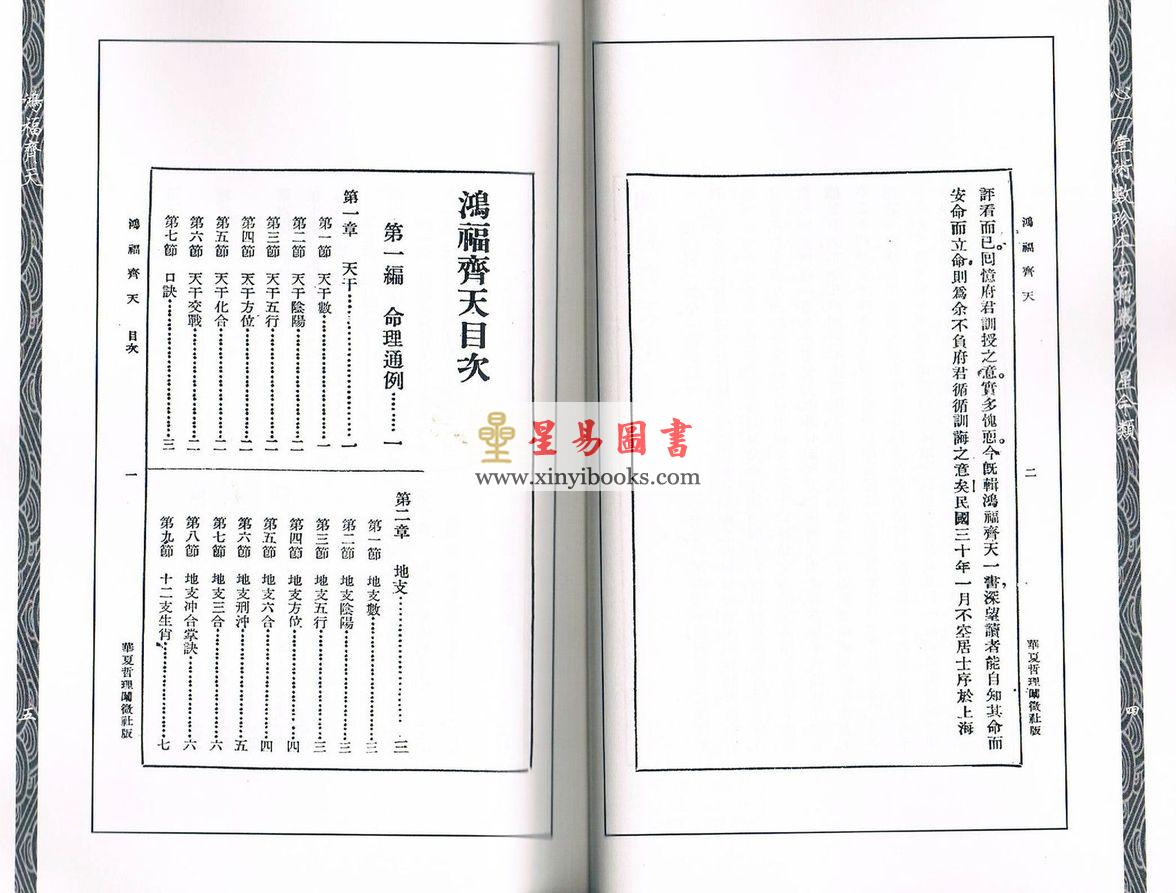 心一堂術數珍本古籍叢刊 星命類
四
鴻福齊天
二
華夏哲理闡微社版
評看而已。回憶府君訓授之意。實多愧恧。今既輯鴻福齊天一書,深望讀者能自知其命而
安命而立命。則爲余不負府君循循訓誨之意矣民國三十年一月不空居士序於上海
鴻福齊天目次
第一編 命理通例………一
第一章 天干………一
第一節 天干數………一
第二節 天干陰陽………二
第三節 天干五行………二
第四節 天干方位………二
第五節 天干化合………二
第六節 天干交戰………二
第七節 口訣………三
第二章 地支………三
第一節 地支數………三
第二節 地支陰陽………三
第三節 地支五行………三
第四節 地支方位………四
第五節 地支六合………四
第六節 地支刑沖………五
第七節 地支三合………六
第八節 地支沖合掌訣………六
第九節 十二支生肖………七
鴻福齊天 目次
一
華夏哲理闡微社版
鴻福齊天
五
星易圖書
www.xinyibooks.com